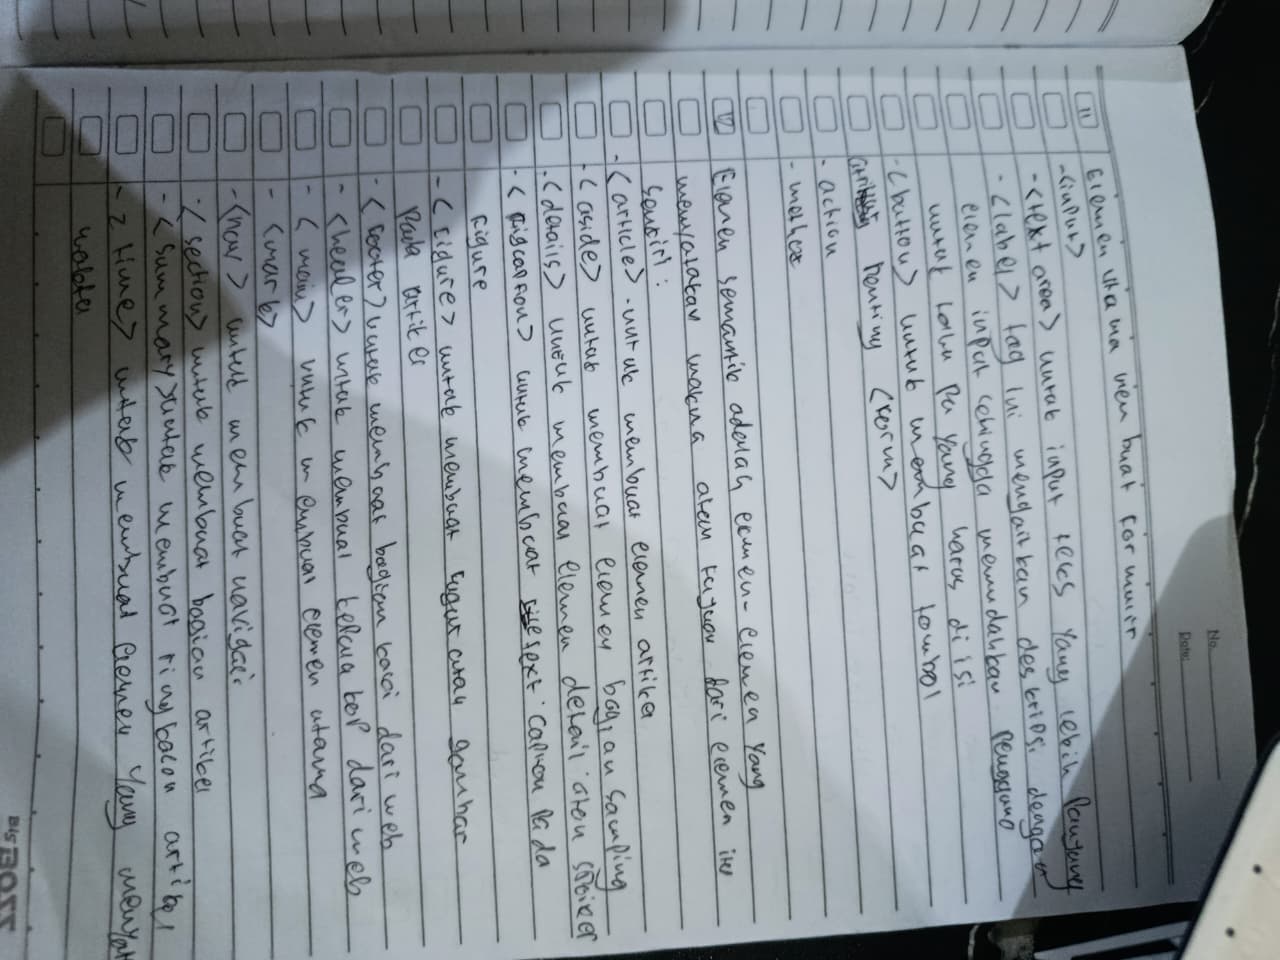 No.
Date:
11 Elemen utama membuat formulir
- <input>
- <text area> untuk input teks yang lebih panjang
- <label> tag ini mengaitkan deskripsi dengan
elemen input sehingga memudahkan pengguna
untuk tahu pa yang harus di isi
- <button> untuk membuat tombol
penting <form>
- action
- methor
12 Elemen semantik adalah elemen-elemen yang
menyatakan makna atau tujuan dari elemen itu
sendiri:
- <article> - untuk membuat elemen artikel
- <aside> untuk membuat elemen bagian samping
- <details> untuk membuat elemen detail atau spoiler
- <figcaption> untuk membuat text caption pada
figure
- <figure> untuk membuat figur atau gambar
pada artikel
- <footer> untuk membuat bagian kaki dari web
- <header> untuk membuat kepala kop dari web
- <main> untuk membuat elemen utama
- <mark>
- <nav> untuk membuat navigasi
- <section> untuk membuat bagian artikel
- <summary> untuk membuat ringkasan artikel
- <time> untuk membuat elemen yang menyatakan
waktu
BOSS